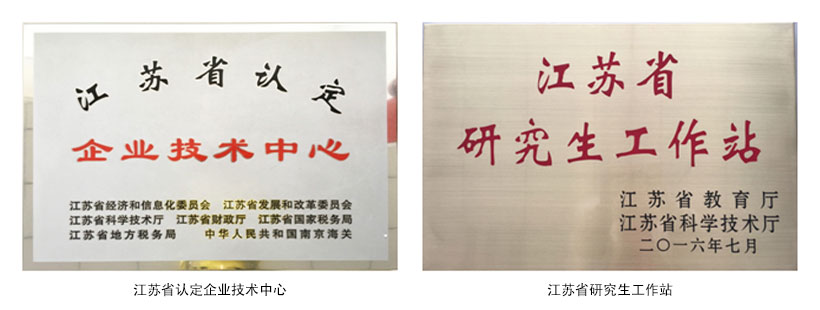 江苏省认定
企业技术中心
江苏省经济和信息化委员会 江苏省发展和改革委员会
江苏省科学技术厅 江苏省财政厅 江苏省国家税务局
江苏省地方税务局 中华人民共和国南京海关
江苏省认定企业技术中心
江苏省
研究生工作站
江苏省教育厅
江苏省科学技术厅
二〇一六年七月
江苏省研究生工作站